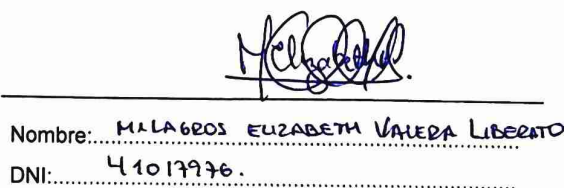 MElizabethV.
Nombre: MILAGROS ELIZABETH VALERA LIBERATO
DNI: 41017976.